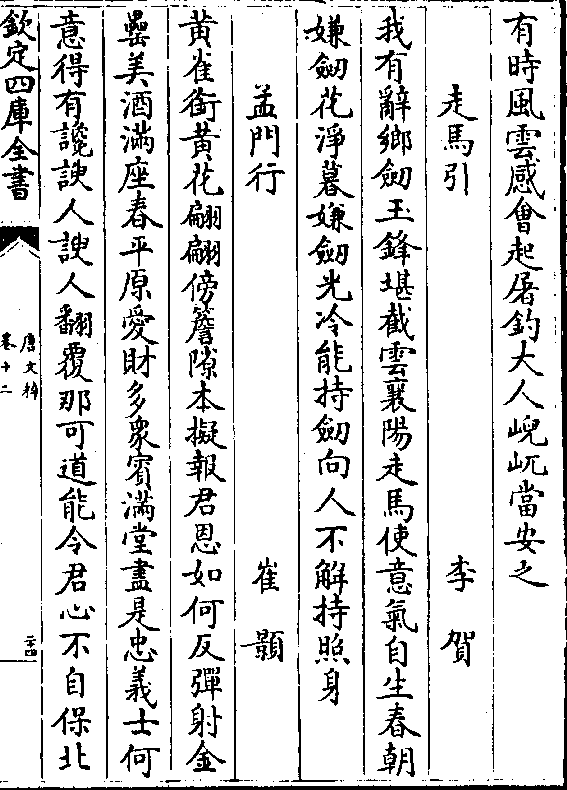 有時風雲感會起屠釣大人峴屼當安之
走馬引 李賀
我有辭鄉劒玉鋒堪截雲襄陽走馬使意氣自生春朝
嫌劒花淨暮嫌劒光冷能持劒向人不解持照身
孟門行 崔顥
黄雀銜黄花翩翩傍簷隙本擬報君恩如何反彈射金
罍美酒滿座春平原愛財多衆賓滿堂盡是忠義士何
意得有讒諛人諛人翻覆那可道能令君心不自保北
欽定四庫全書
唐文粹
卷十二
二十四